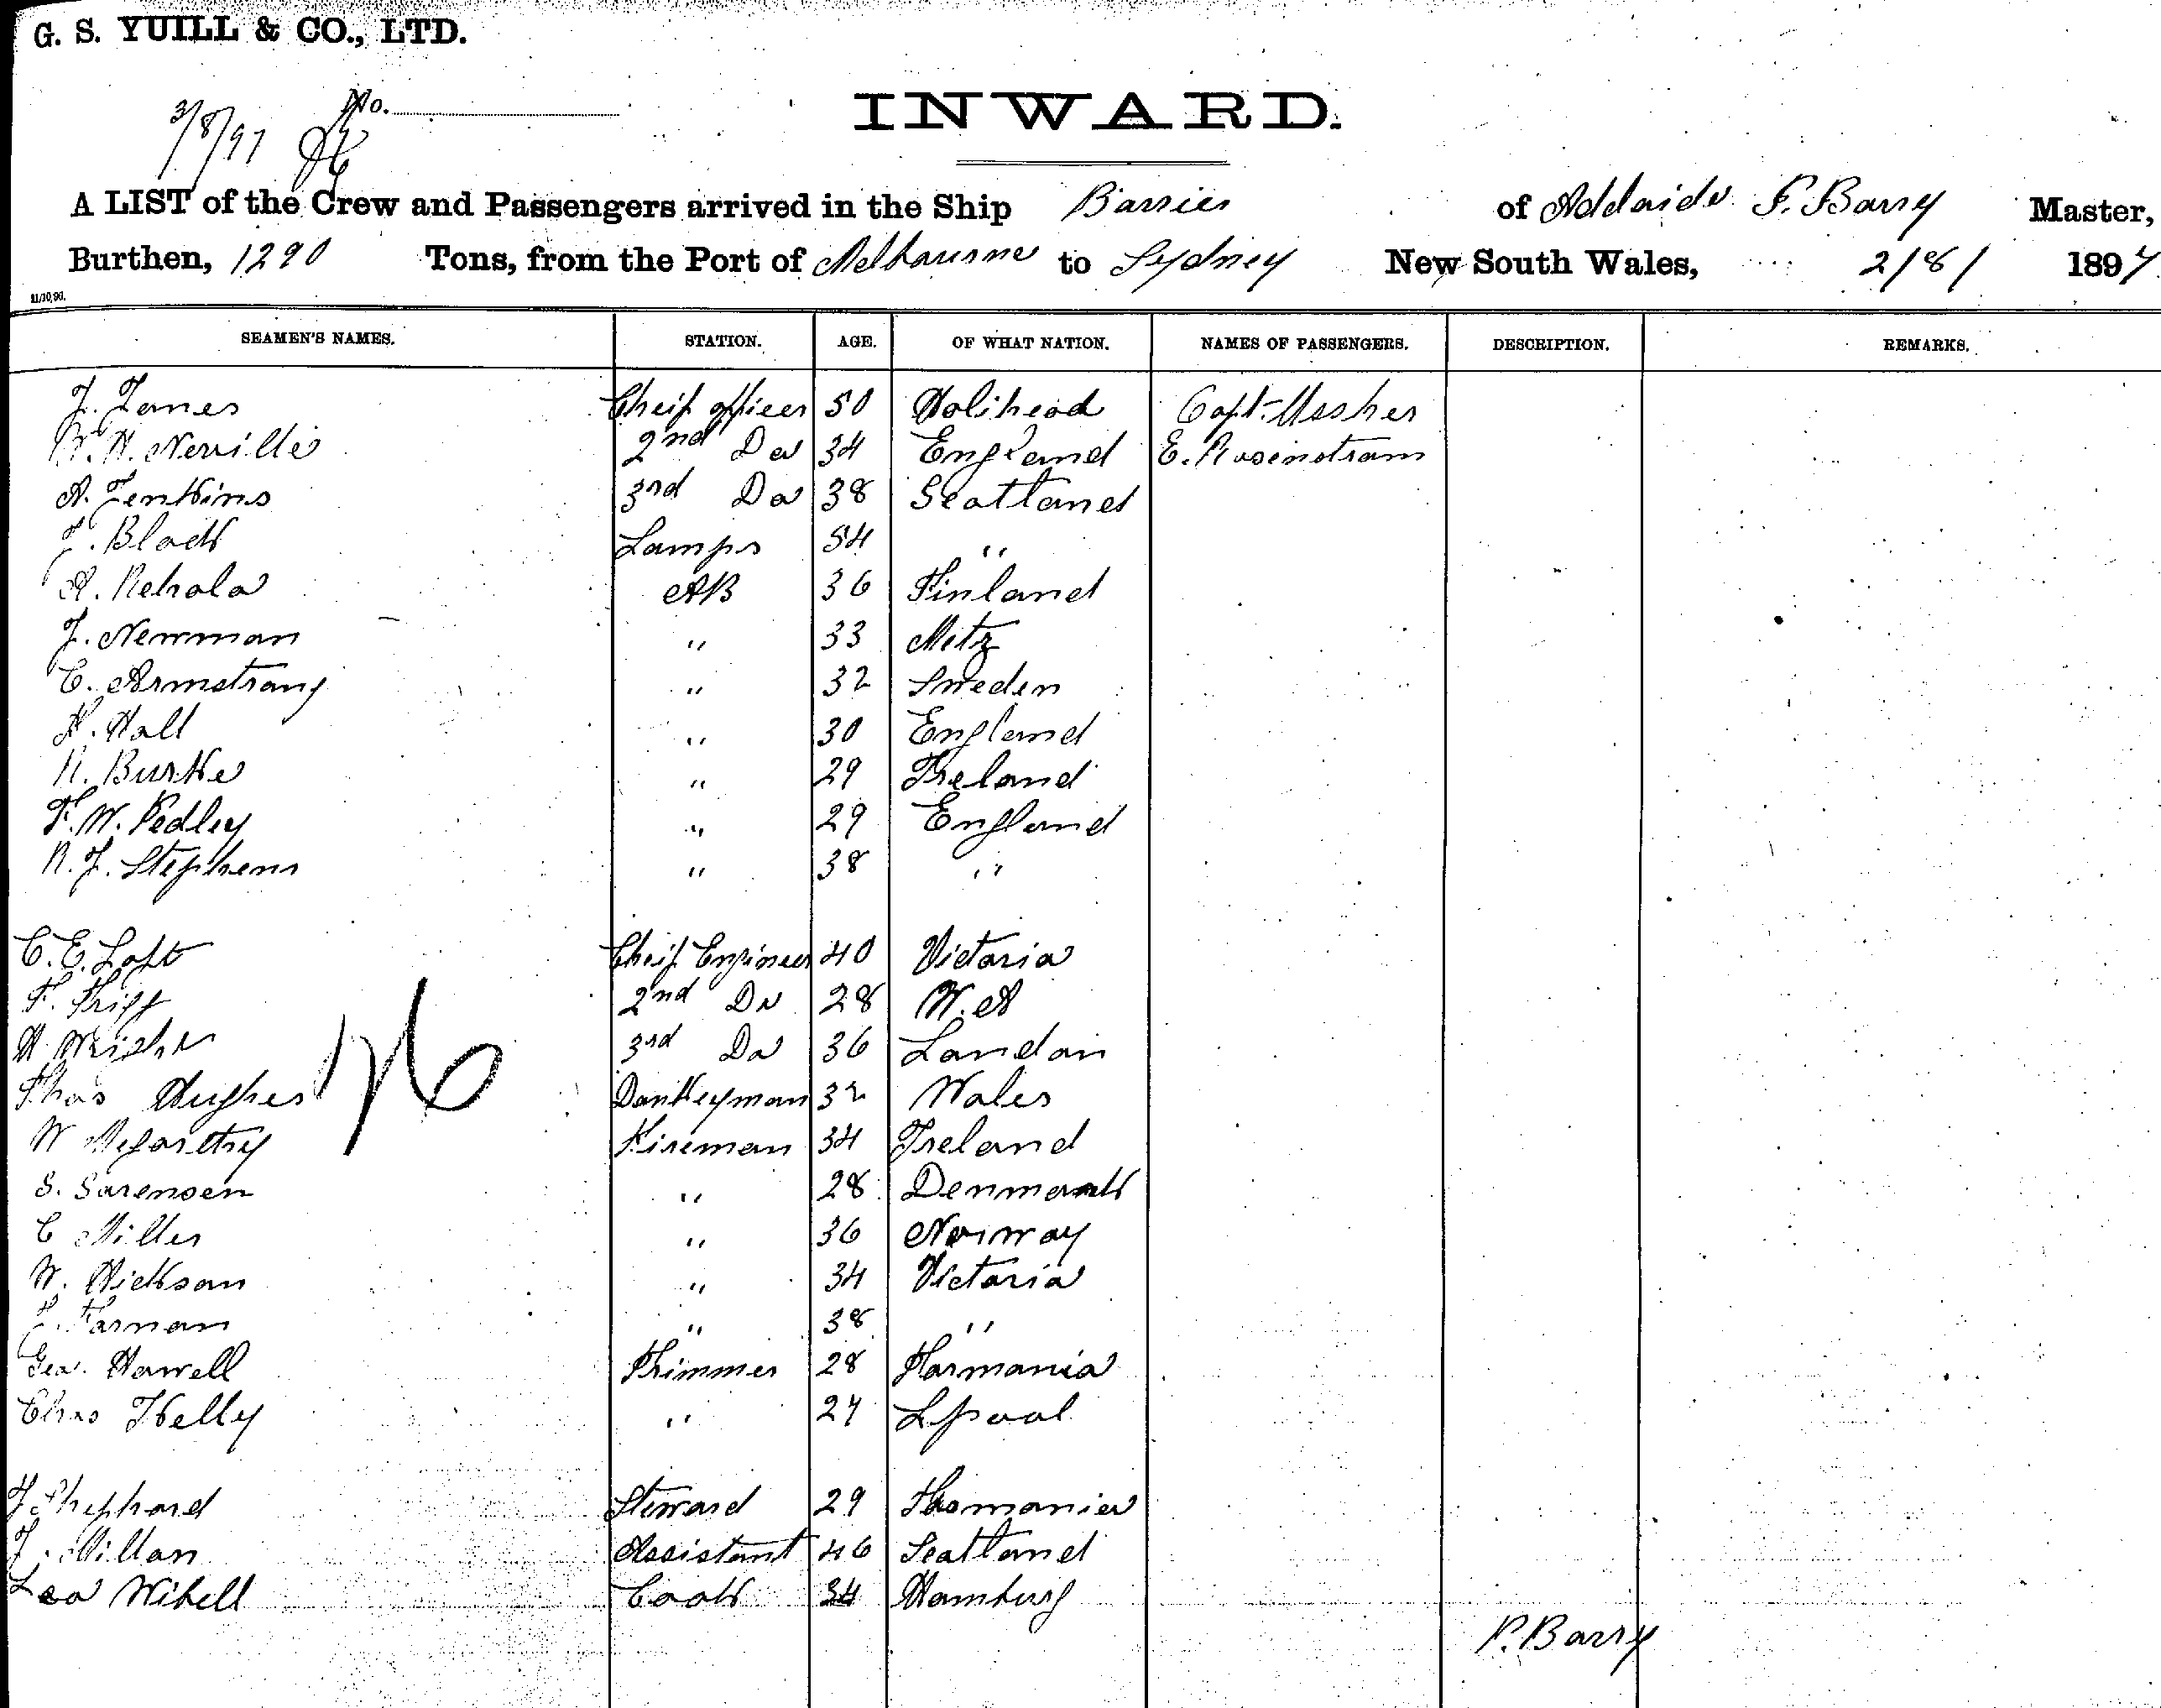 G. S. YUILL & CO., LTD.
No.
3/8/97
INWARD.
A LIST of the Crew and Passengers arrived in the Ship Barrier of Adelaide P. Barry Master,
Burthen, 1290 Tons, from the Port of Melbourne to Sydney New South Wales, 2/8/ 1897
21/10/96.
SEAMEN'S NAMES. STATION. AGE. OF WHAT NATION. NAMES OF PASSENGERS. DESCRIPTION. REMARKS.
J. Jones Cheif officer 50 Holihead Capt.
W. H. Neville 2nd Do 34 England E. Rosenstram
A. Jenkins 3rd Do 38 Scotland
J. Black Lamps 54 "
A. AB 36 Finland
J. Newman " 33 Metz
C. Armstrong " 32 Sweden
H. Hall " 30 England
R. Burke " 29 Ireland
F. W. Pedley " 29 England
R. J. Stephens " 38 "
C. E. Loft Cheif Engineer 40 Victoria
F. Tripp 2nd Do 28 W. A
H. Wright 3rd Do 36 London
Thos Hughes Donkeyman 32 Wales
W Megarthy Fireman 34 Ireland
S. Sorensen " 28 Denmark
C Miller " 36 Norway
W. Hickson " 34 Victoria
J. Farnan " 38 "
Geo. Howell Trimmer 28 Tasmania
Chas Kelly " 27 Lpool
J Shephard Steward 29 Tasmania
J. Millan Assistant 46 Scotland
Leo Wibell Cook 34 Hamburg
P. Barry